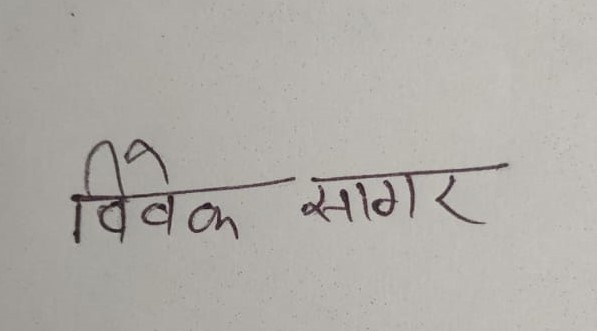 विवेक सागर